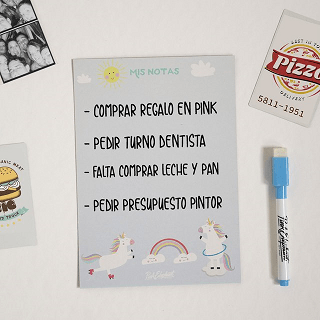 MIS NOTAS
- COMPRAR REGALO EN PINK
- PEDIR TURNO DENTISTA
- FALTA COMPRAR LECHE Y PAN
- PEDIR PRESUPUESTO PINTOR
Pizza
DELIVERY
5811-1951